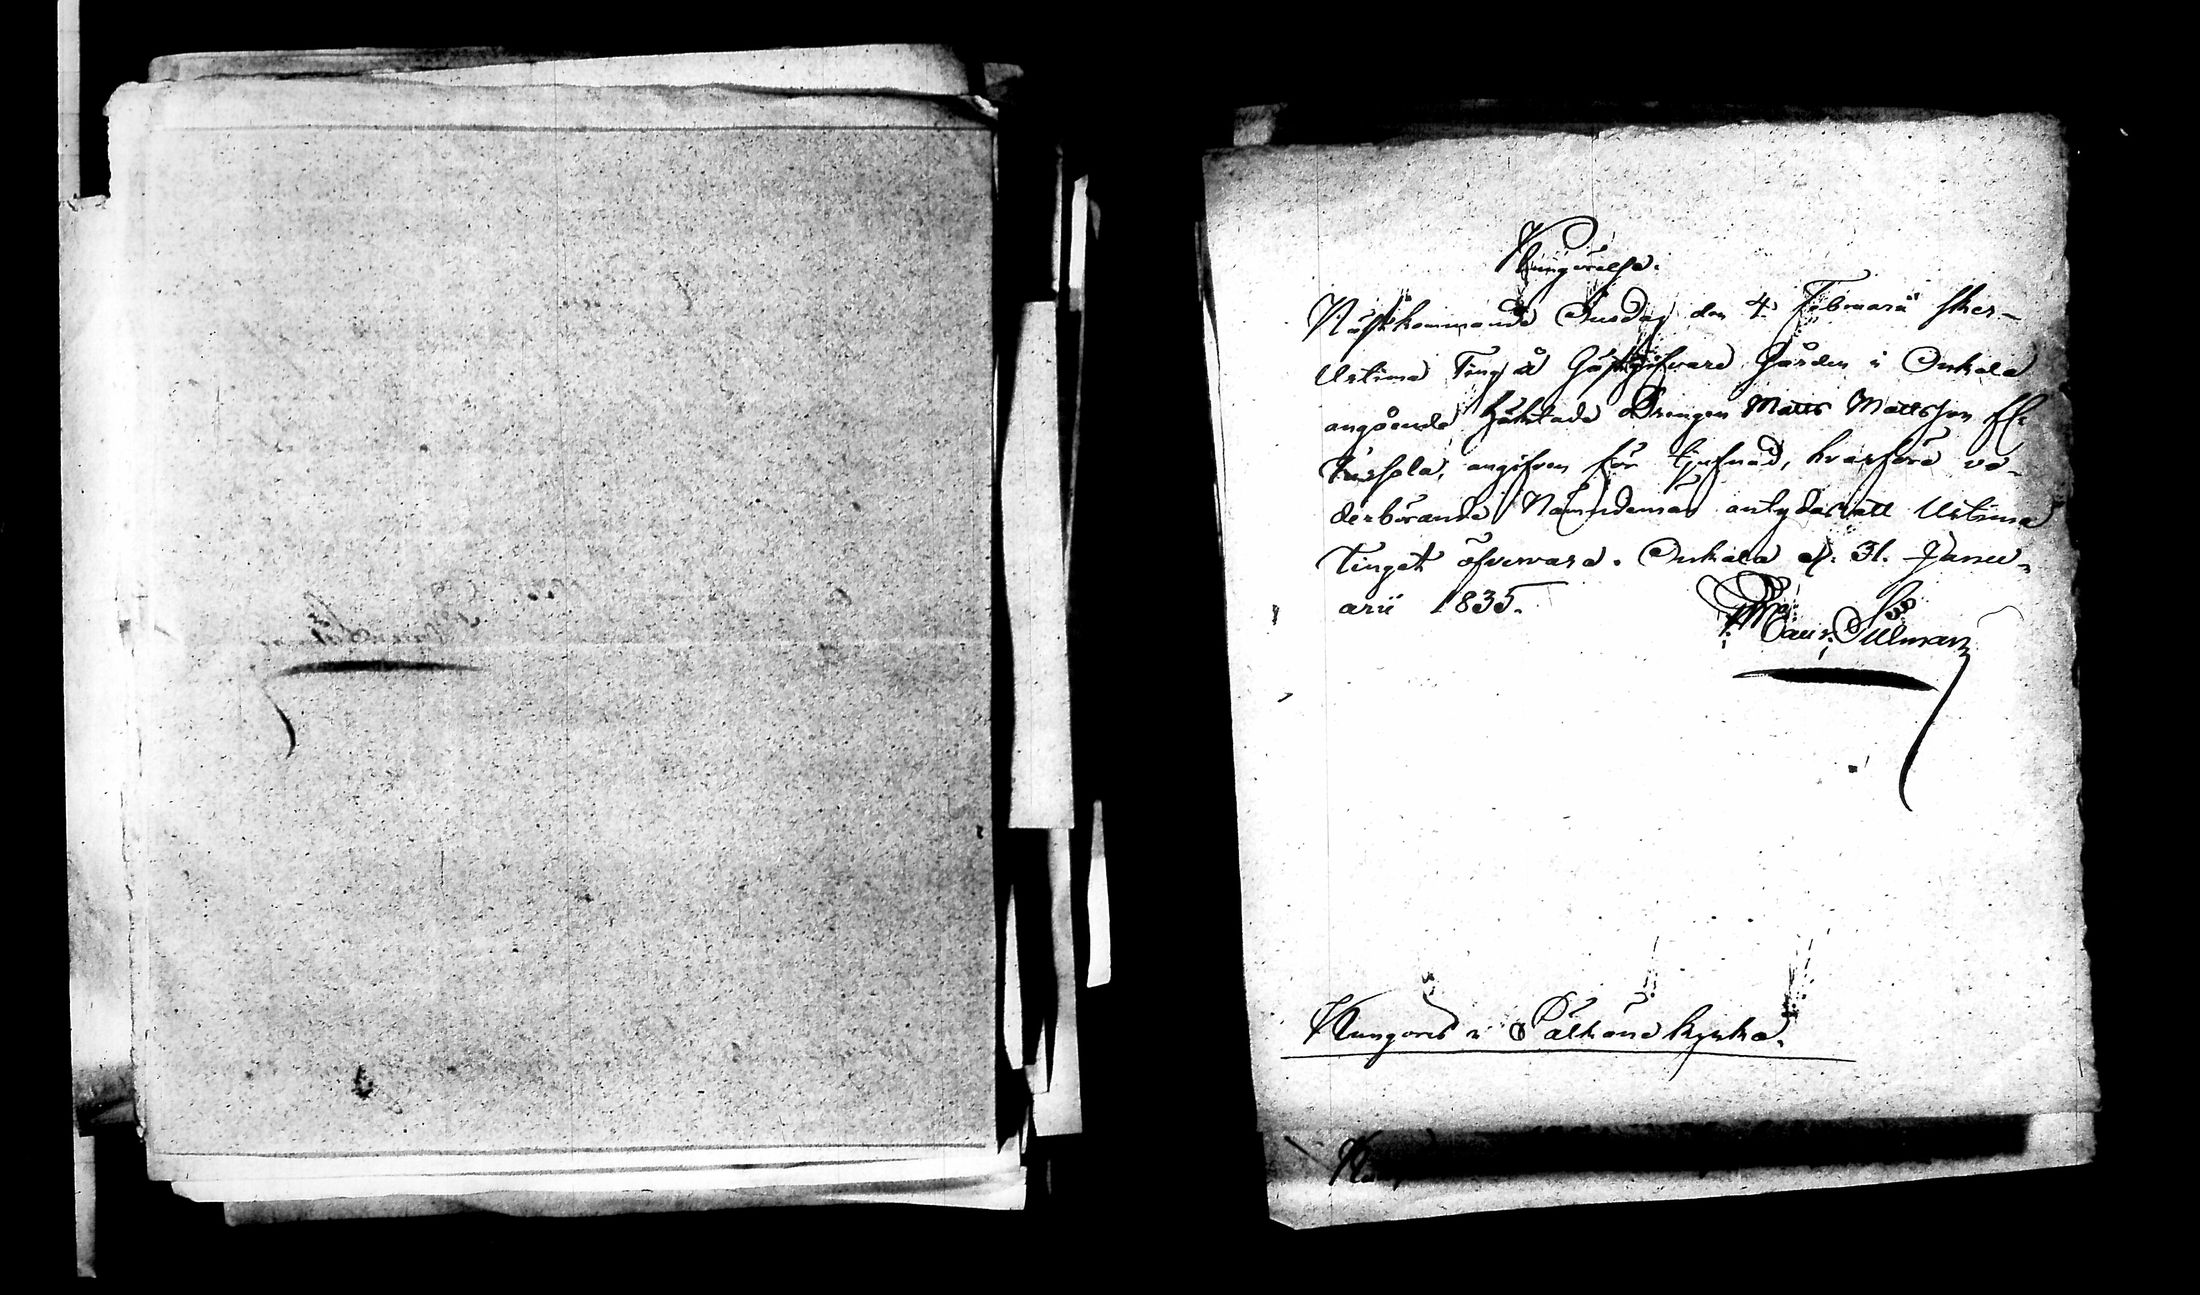 Kungörelse.
Nästkommande Onsdag den 4. Februarii sker
Urtima Ting å Gästgifvare Gården i Onkala
angående häktade Drengen Matts Mattsson
angifven för tjufnad, hvarföre ve-
derbörande Nämndemän antydas att Urtima
Tinget öfvervara. Onkala d. 31. Janu-
arii 1835.
Kungöres i Pälkäne kyrka.